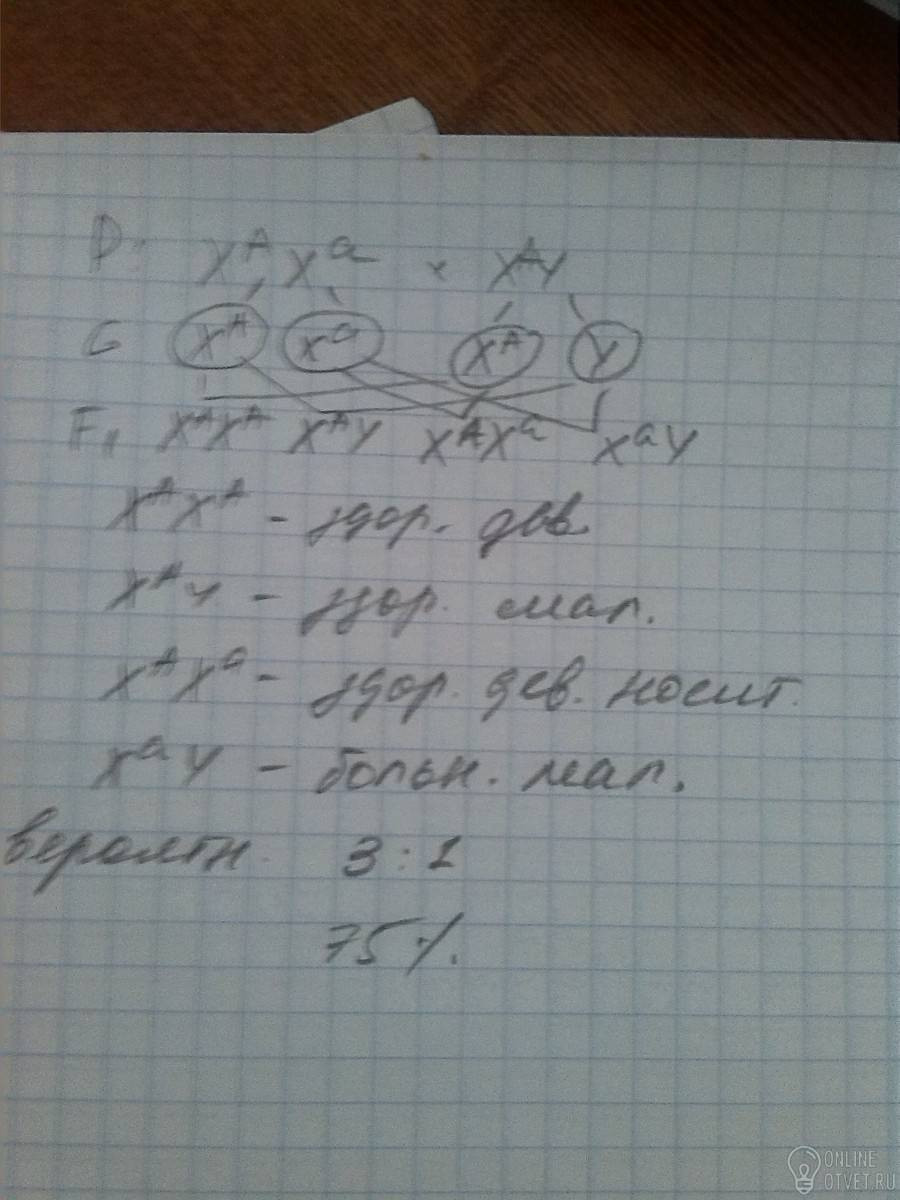 P: XᴬXᵃ × XᴬY
G Xᴬ Xᵃ Xᴬ Y
F₁ XᴬXᴬ XᴬY XᴬXᵃ XᵃY
XᴬXᴬ - здор. дев
XᴬY - здор. мал.
XᴬXᵃ - здор. дев. носит.
XᵃY - больн. мал.
вероятн. 3 : 1
75%.
ONLINE
OTVET.RU